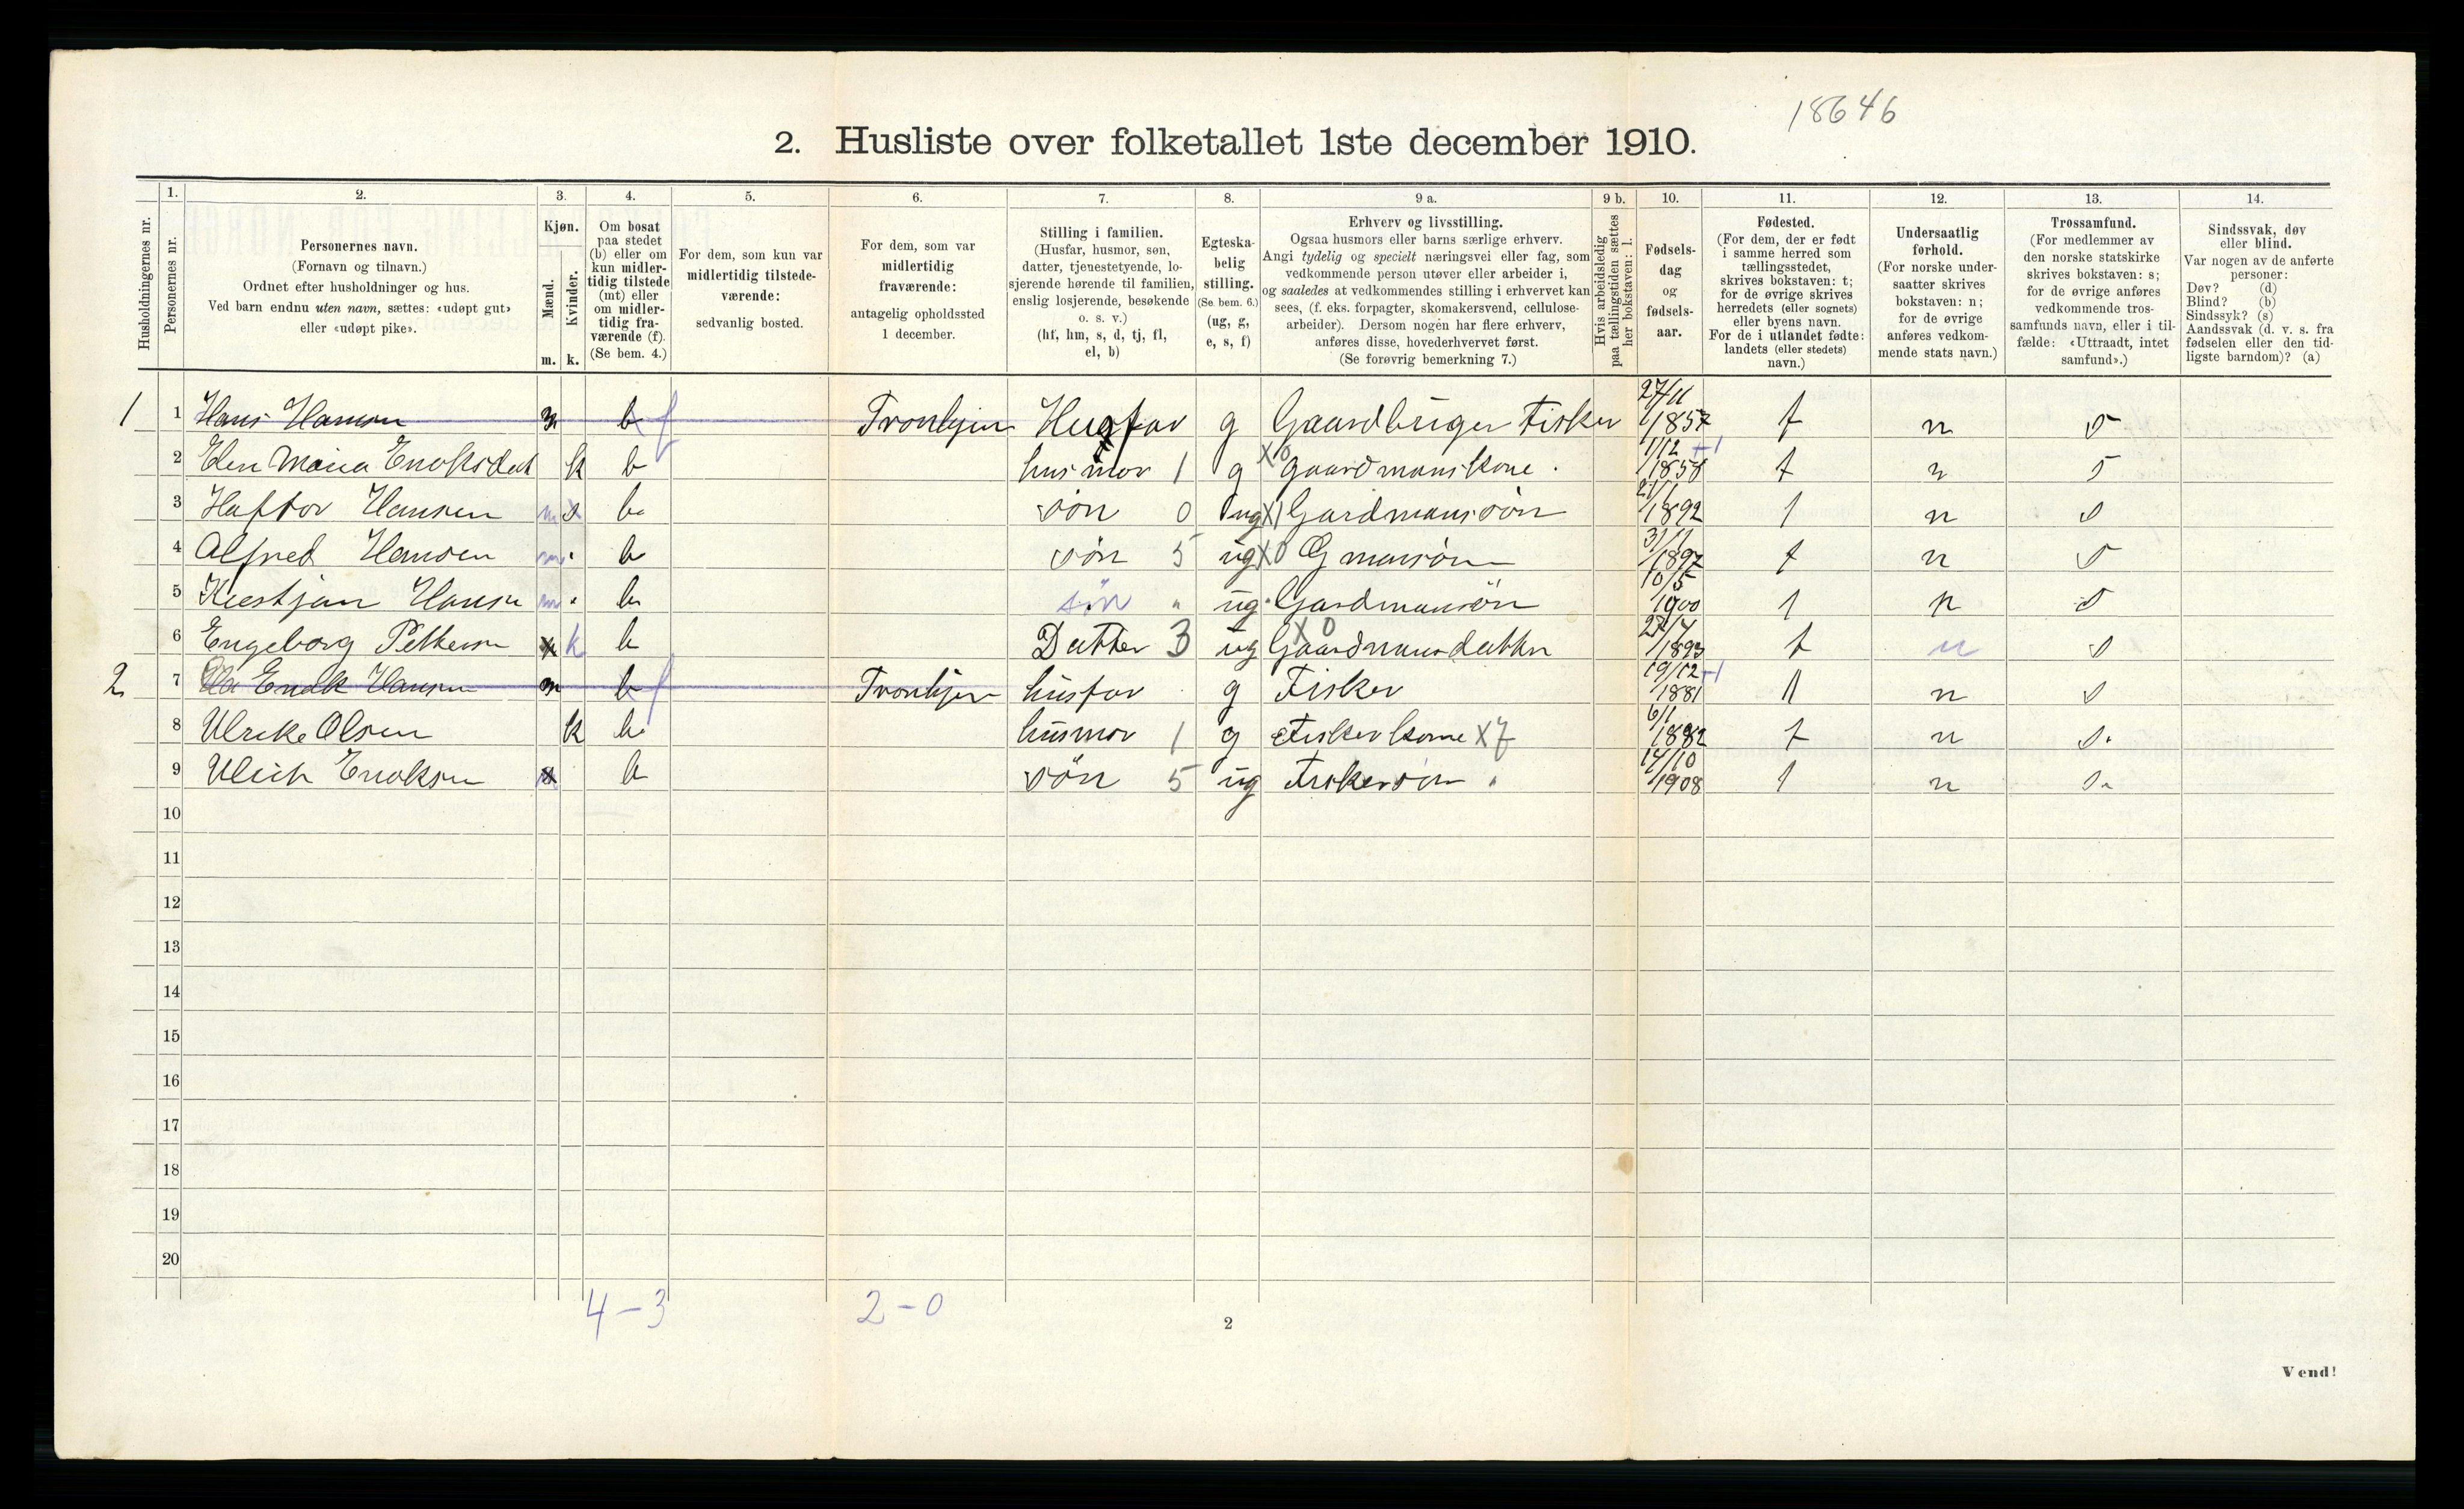 18646
2. Husliste over folketallet 1ste december 1910.
Husholdningernes nr.
1.
Personernes nr.
2.
Personernes navn.
(Fornavn og tilnavn.)
Ordnet efter husholdninger og hus.
Ved barn endnu uten navn, sættes: «udøpt gut»
eller «udøpt pike».
3.
Kjøn.
Mænd.
Kvinder.
m. k.
4.
Om bosat
paa stedet
(b) eller om
kun midler-
tidig tilstede
(mt) eller
om midler-
tidig fra-
værende (f).
(Se bem. 4.)
5.
For dem, som kun var
midlertidig tilstede-
værende:
sedvanlig bosted.
6.
For dem, som var
midlertidig
fraværende:
antagelig opholdssted
1 december.
7.
Stilling i familien.
(Husfar, husmor, søn,
datter, tjenestetyende, lo-
sjerende hørende til familien,
enslig losjerende, besøkende
o. s. v.)
(hf, hm, s, d, tj, fl,
el, b)
8.
Egteska-
belig
stilling.
(Se bem. 6.)
(ug, g,
e, s, f)
9 a.
Erhverv og livsstilling.
Ogsaa husmors eller barns særlige erhverv.
Angi tydelig og specielt næringsvei eller fag, som
vedkommende person utøver eller arbeider i,
og saaledes at vedkommendes stilling i erhvervet kan
sees, (f. eks. forpagter, skomakersvend, cellulose-
arbeider). Dersom nogen har flere erhverv,
anføres disse, hovederhvervet først.
(Se forøvrig bemerkning 7.)
9 b.
Hvis arbeidsledig
paa tællingstiden sættes
her bokstaven: l.
10.
Fødsels-
dag
og
fødsels-
aar.
11.
Fødested.
(For dem, der er født
i samme herred som
tællingsstedet,
skrives bokstaven: t;
for de øvrige skrives
herredets (eller sognets)
eller byens navn.
For de i utlandet fødte:
landets (eller stedets)
navn.)
12.
Undersaatlig
forhold.
(For norske under-
saatter skrives
bokstaven: n;
for de øvrige
anføres vedkom-
mende stats navn.)
13.
Trossamfund.
(For medlemmer av
den norske statskirke
skrives bokstaven: s;
for de øvrige anføres
vedkommende tros-
samfunds navn, eller i til-
fælde: «Uttraadt, intet
samfund».)
14.
Sindssvak, døv
eller blind.
Var nogen av de anførte
personer:
Døv? (d)
Blind? (b)
Sindssyk? (s)
Aandssvak (d. v. s. fra
fødselen eller den tid-
ligste barndom)? (a)
1 1 Hans Hansen m b f Tronhjem Husfar g Gaardbruger Fisker 27/11 1857 t n s
2 Elen Maria Enoksdat k b husmor 1 g X0 gaardmanskone. 1/12 1858 t n s
3 Haftor Hansen m b søn 0 ug X1 Gardmanssøn 21/1 1892 t n s
4 Alfred Hansen m b søn 5 ug X0 G mansøn 31/1 1897 t n s
5 Kristjan Hansen m b søn " ug Gardmansøn 10/5 1900 t n s
6 Engeborg Pettersen k b Datter 3 ug X0 Gaardmansdatter 27/4 1893 t n s
2 7 Enok Hansen m b f Tronhjem husfar g Fisker 19/12 1881 t n s
8 Ulrike Olsen k b husmor 1 g Fisker kone X7 6/1 1882 t n s.
9 Ulrik Enoksen b søn 5 ug Fiskersøn " 14/10 1908 t n s.
10
11
12
13
14
15
16
17
18
19
20
4-3 2-0
2
Vend!